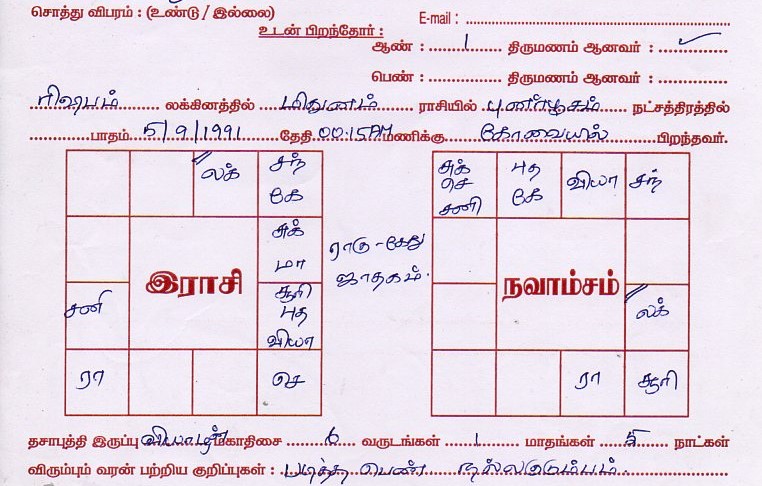 சொத்து விபரம் : (உண்டு / இல்லை)
E-mail :
உடன் பிறந்தோர் :
ஆண் : 1 திருமணம் ஆனவர் : ✓
பெண் : திருமணம் ஆனவர் :
ரிஷபம் லக்கினத்தில் மிதுனம் ராசியில் புனர்பூசம் நட்சத்திரத்தில்
பாதம் 5/9/1991 தேதி 00:15 AM மணிக்கு கோவையில் பிறந்தவர்.
லக்
சந்
கே
சுக்
மா
சூரி
புத
வியா
சனி
இராசி
ரா
செ
ராகு - கேது
ஜாதகம்.
சுக்
செ
சனி
புத
கே
வியா
சந்
நவாம்சம்
லக்
ரா
சூரி
தசாபுத்தி இருப்பு வியாழன் மகாதிசை 6 வருடங்கள் 1 மாதங்கள் 5 நாட்கள்
விரும்பும் வரன் பற்றிய குறிப்புகள் : படித்த பெண் நல்லகுடும்பம்.